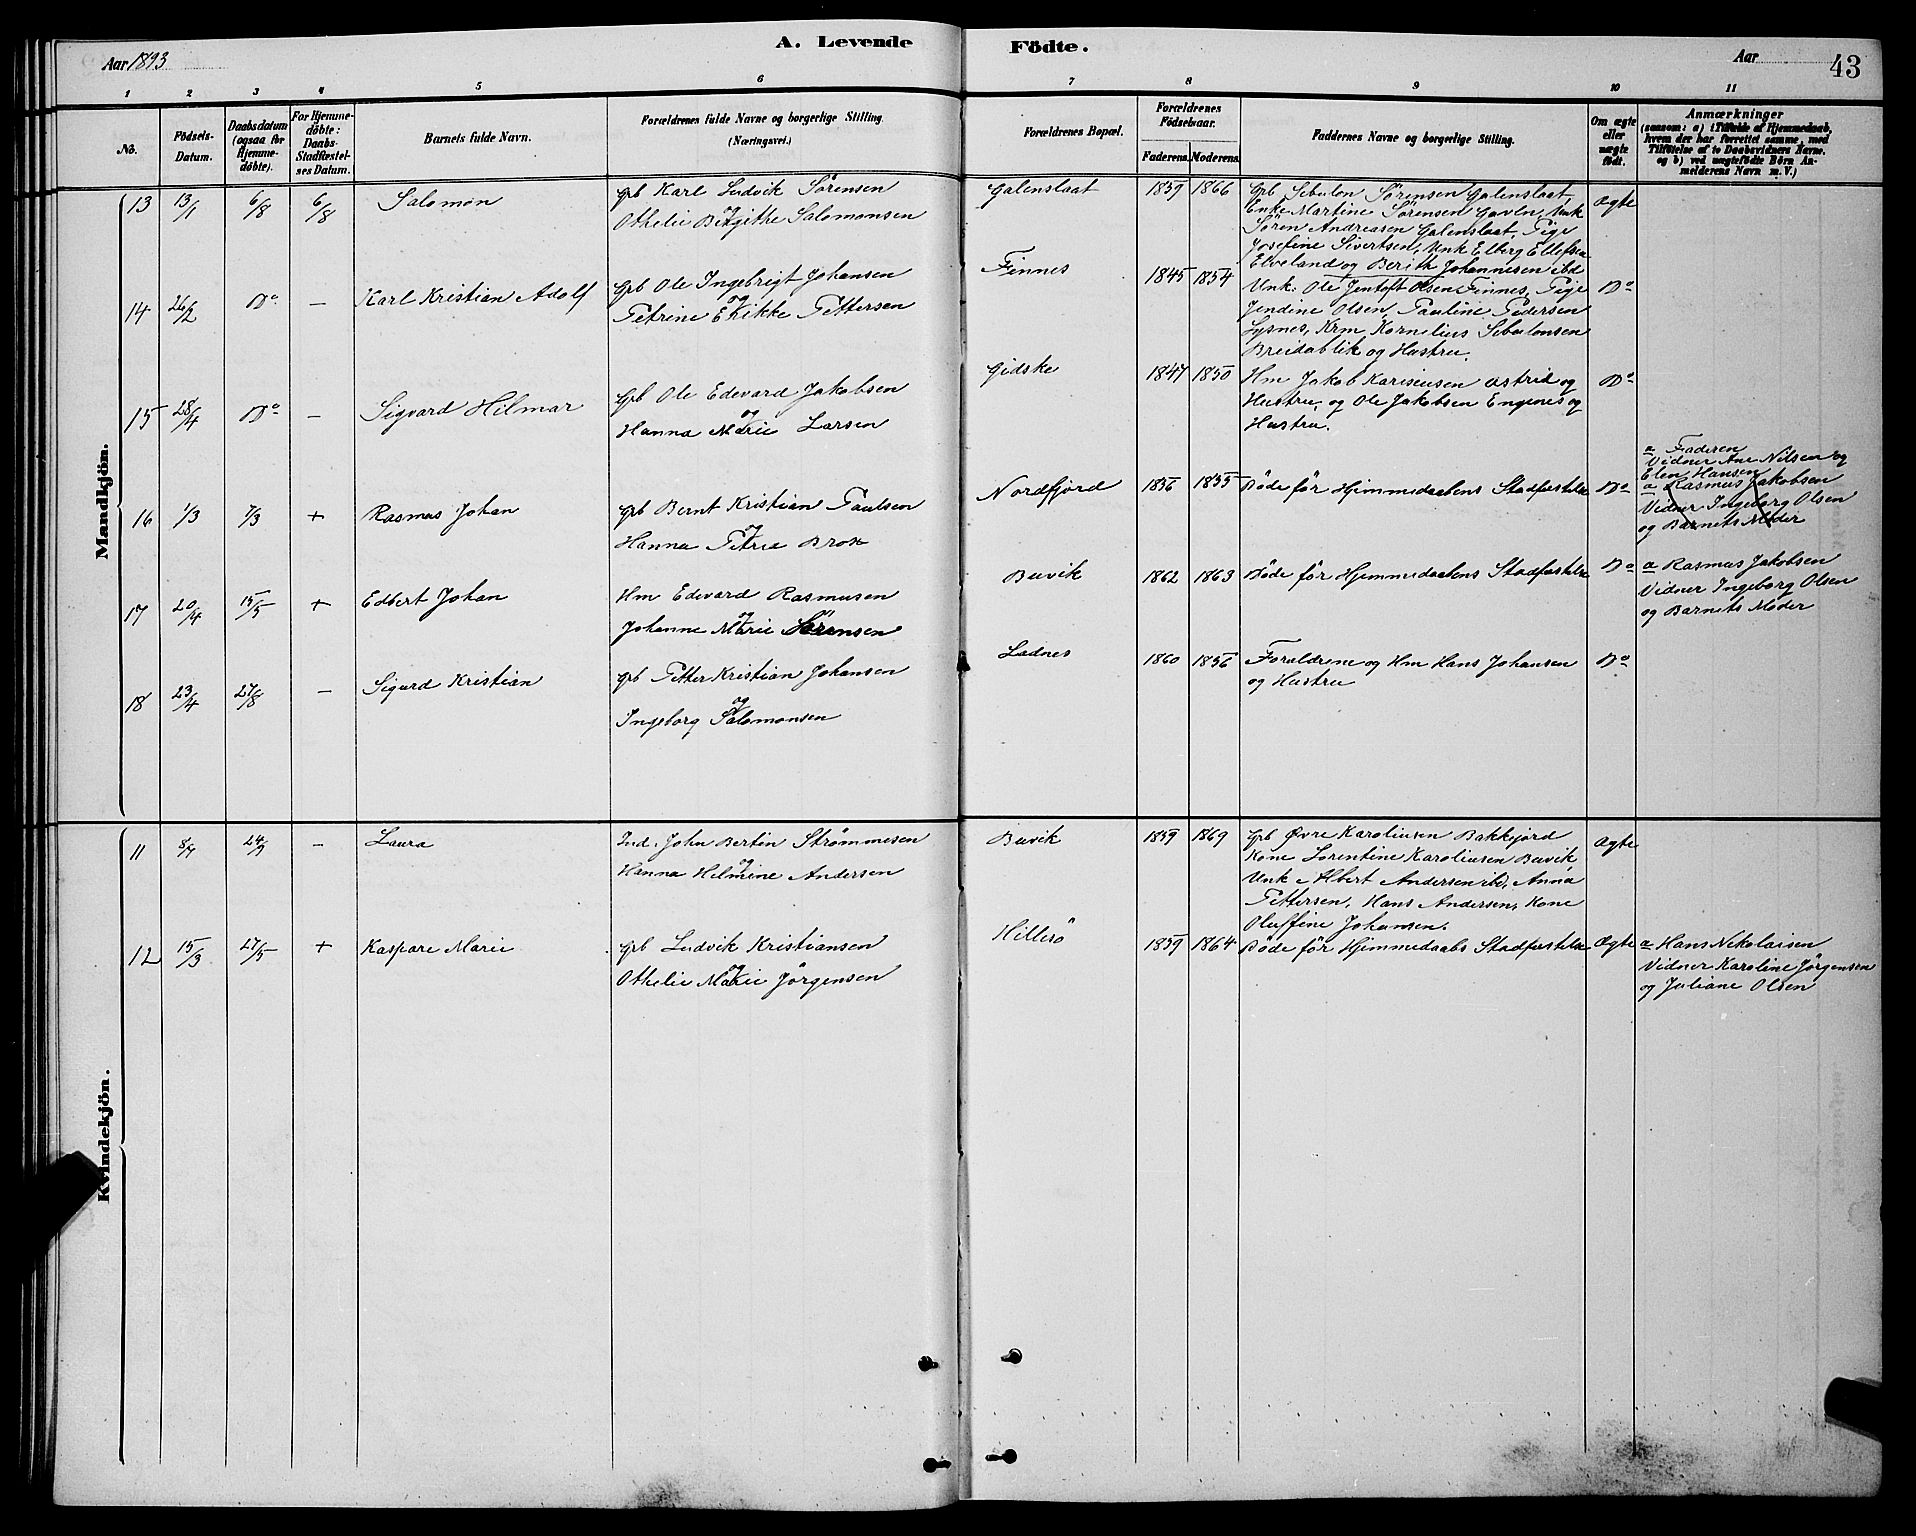 A. Levende Födte.
Aar 1893
Aar
43
1 2 3 4 5 6 7 8 9 10 11
No.
Födsels-
Datum.
Daabsdatum
(ogsaa for
Hjemme-
döbte).
For Hjemme-
döbte:
Daabs-
Stadfæstel-
ses Datum.
Barnets fulde Navn.
Forældrenes fulde Navne og borgerlige Stilling.
(Næringsvei.)
Forældrenes Bopæl.
Forældrenes
Födselsaar.
Faderens. Moderens.
Faddernes Navne og borgerlige Stilling.
Om ægte
eller
uægte
födt.
Anmærkninger
(saasom: a) i Tilfælde af Hjemmedaab,
hvem der har forrettet samme, med
Tilföielse af to Daabsvidners Navne.
og b) ved uægtefödte Börn An-
melderens Navn m. V.)
Mandkjön.
13 13/1 6/8 6/8 Salomon
Grb Karl Ludvik Sörensen
og
Othelie Birgithe Salomonsen
Galenslaat 1859 1866
Grb Sebulon Sörensen Galenslaat,
Enke Martine Sörensen Gavln, Unk
Sören Andreasen Galenslaat, Pige
Josefine Sivertsen, Unk Elberg Ellefsen
Elveland og Berith Johannesen ibd
Ægte
14 26/2 Do – Karl Kristian Adolf
Grb Ole Ingebrigt Johansen
og
Petrine Erikke Pettersen
Finnes 1845 1854
Unk: Ole Jentoft Olsen Finnes, Pige
Jendine Olsen, Pauline Pedersen
Lysnes, Krm Kornelius Sebulonsen
Breidablik og Hustru.
Do
15 28/4 Do – Sigvard Hilmar
Grb Ole Edevard Jakobsen
og
Hanna Marie Larsen
Gidske 1847 1850
Hm Jakob Kariusen Østrid og
Hustru, og Ole Jakobsen Engenes og
Hustru.
Do
16 1/3 7/3 + Rasmus Johan
Grb Bernt Kristian Paulsen
og
Hanna Petrea Brox
Nordfjord 1856 1855 Döde för Hjemmedaabens Stadfæstelse Do
a Faderen
Vidner Ane Nilsen og
Elen Hansen
a Rasmus Jakobsen
Vidner Ingeborg Olsen
og Barnets Moder
17 20/4 15/5 + Edbert Johan
Hm Edevard Rasmusen
og
Johanne Marie Sörensen
Buvik 1862 1863 Döde för Hjemmedaabens Stadfæstelse Do
a Rasmus Jakobsen
Vidner Ingeborg Olsen
og Barnets Moder
18 23/4 27/8 – Sigurd Kristian
Grb Petter Kristian Johansen
og
Ingeborg Salomonsen
Ladnes 1860 1856 Forældrene og Hm Hans Johansen
og Hustru
Do
Kvindekjön.
11 8/7 24/9 – Laura
Ind. John Bertin Strömmesen
og
Hanna Helmine Andersen
Buvik 1859 1869
Grb Øvre Karoliusen Bakkejord
Kone Lorentine Karoliusen Buvik
Unk Albert Andersen ibd, Anna
Pettersen, Hans Andersen, Kone
Oluffine Johansen.
Ægte
12 15/3 27/5 + Kaspare Marie
Grb Ludvik Kristiansen
og
Othelie Marie Jörgensen
Hillesö 1859 1864 Döde för Hjemmedaabs Stadfæstelse Ægte
a Hans Nekolaisen
Vidner Karoline Jörgensen
og Juliane Olsen